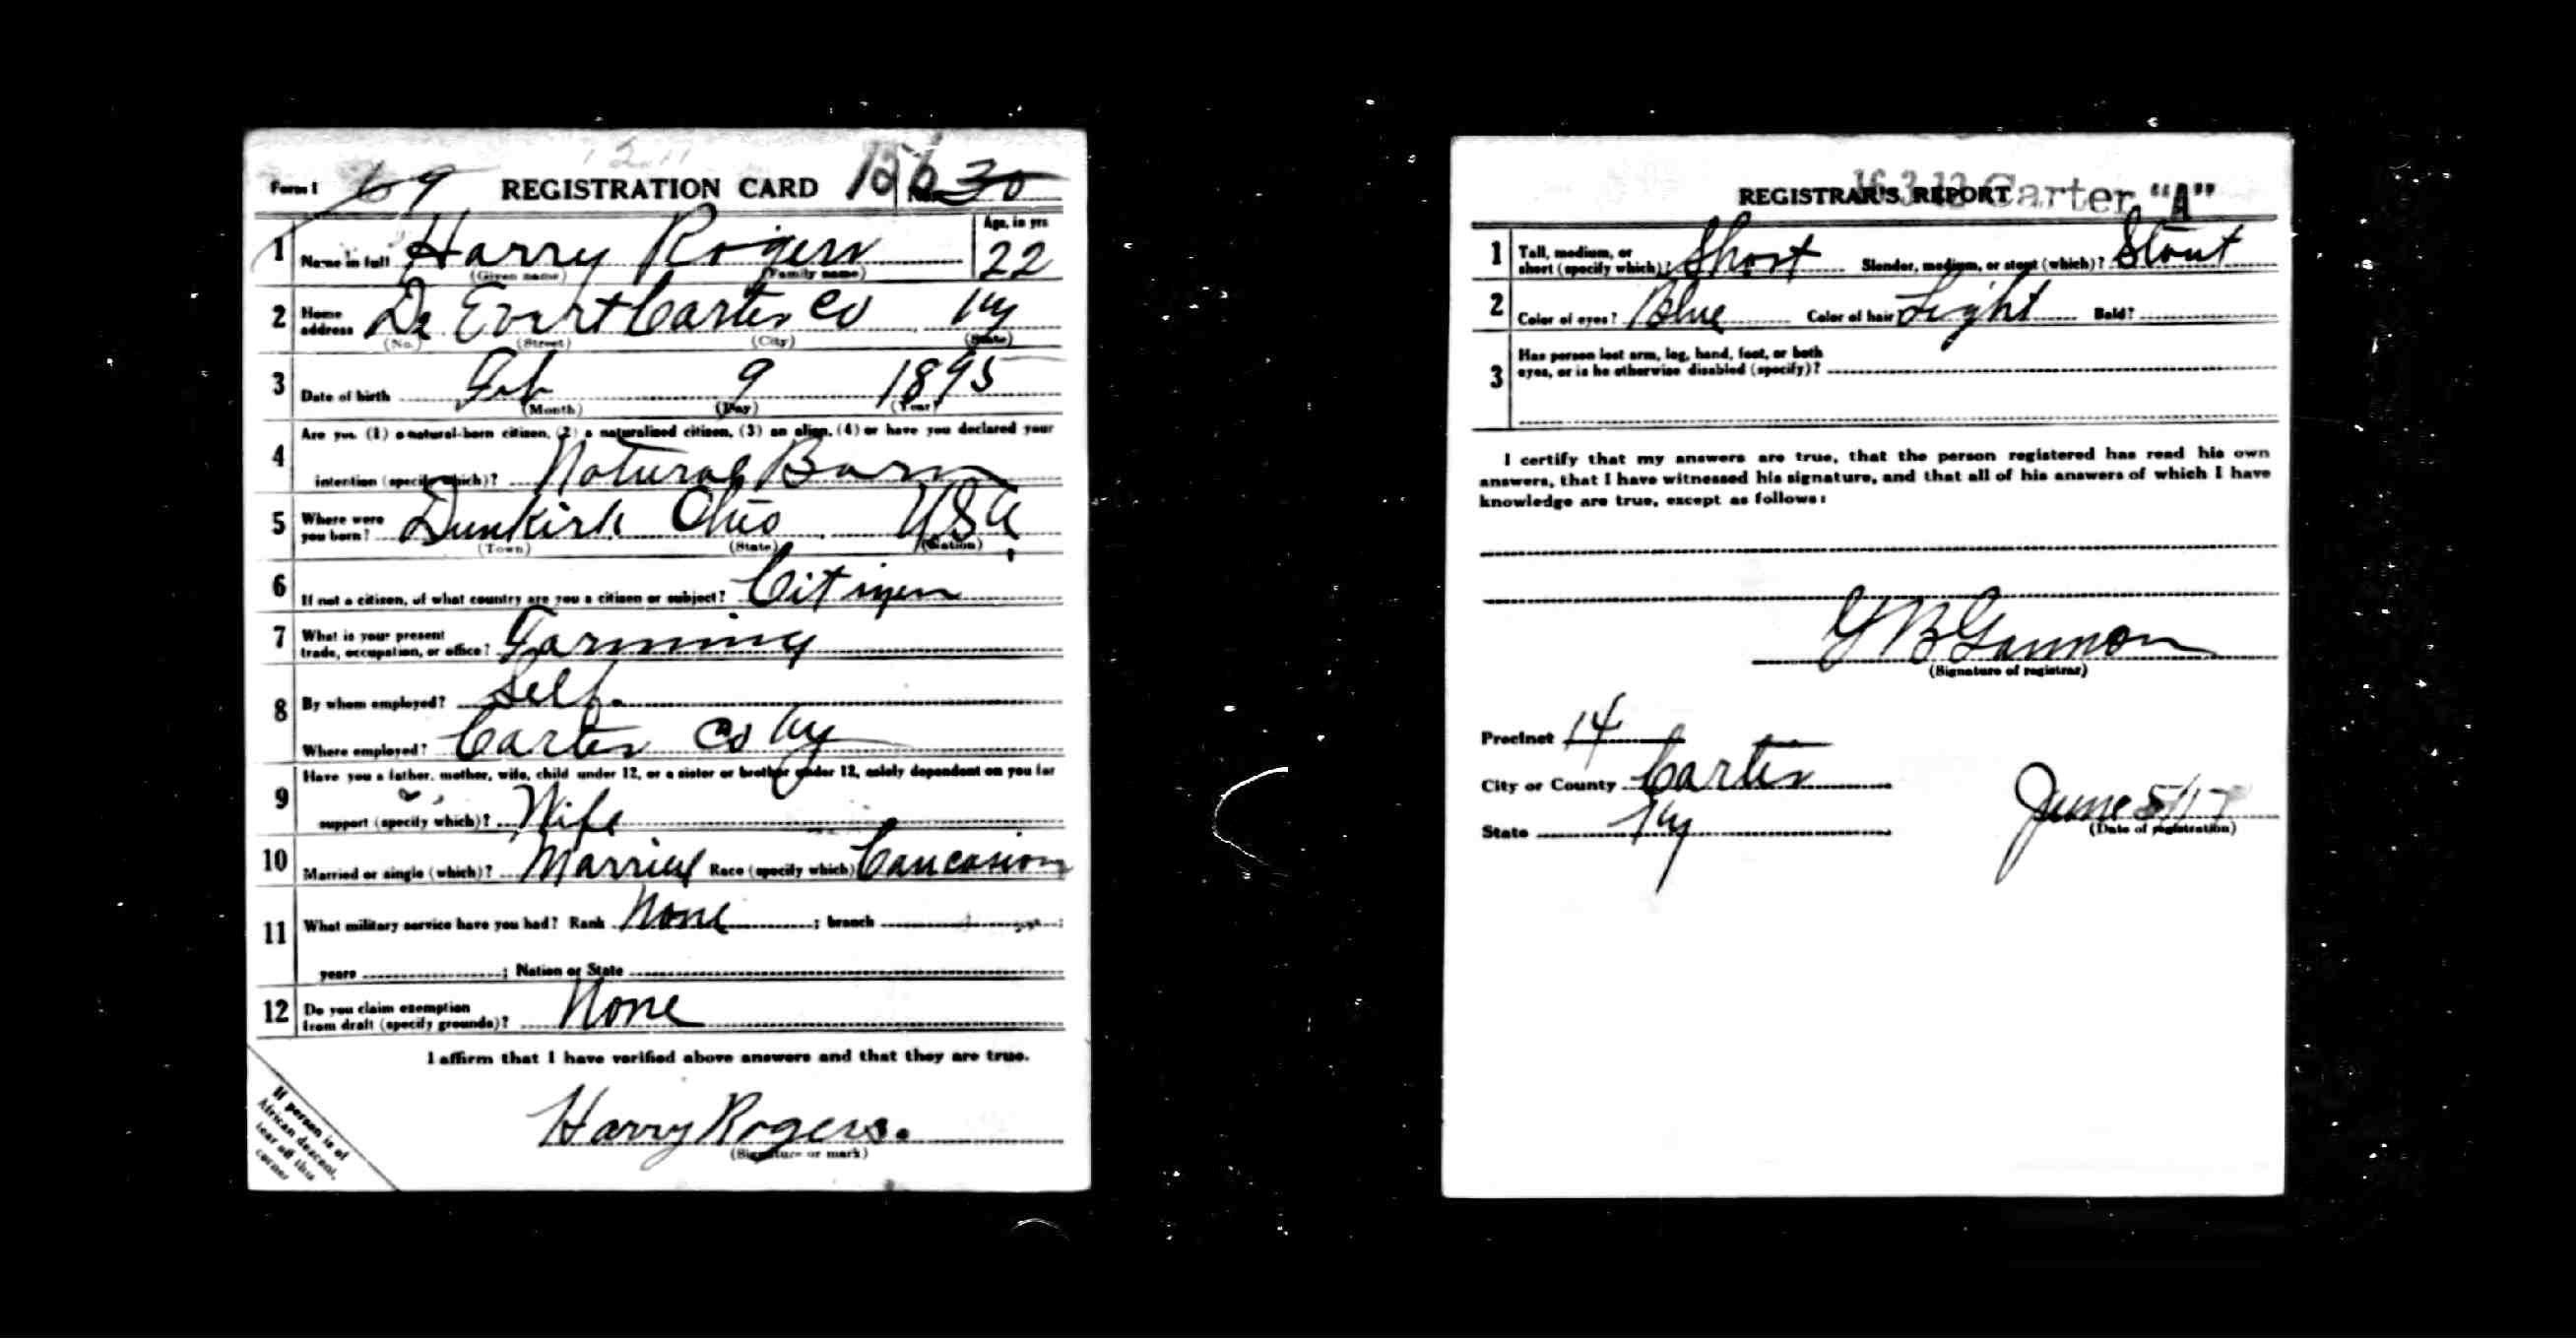 Form 1 69 REGISTRATION CARD 156 No. 30
1 Name in full Harry Rogers Age, in yrs 22
(Given name) (Family name)
2 Home address De Evert Carter Co Ky
(No.) (Street) (City) (State)
3 Date of birth Feb 9 1895
(Month) (Day) (Year)
4 Are you (1) a natural-born citizen, (2) a naturalized citizen, (3) an alien, (4) or have you declared your
intention (specify which)? Natural Born
5 Where were you born? Dunkirk Ohio USA
(Town) (State) (Nation)
6 If not a citizen, of what country are you a citizen or subject? Citizen
7 What is your present
trade, occupation, or office? Farming
8 By whom employed? Self.
Where employed? Carter Co Ky
9 Have you a father, mother, wife, child under 12, or a sister or brother under 12, solely dependent on you for
support (specify which)? Wife
10 Married or single (which)? Married Race (specify which) Caucasion
11 What military service have you had? Rank None ; branch ;
years ; Nation or State
12 Do you claim exemption
from draft (specify grounds)? None
I affirm that I have verified above answers and that they are true.
Harry Rogers.
(Signature or mark)
If person is of
African descent,
tear off this
corner
REGISTRAR'S REPORT Carter "A"
1 Tall, medium, or
short (specify which)? Short Slender, medium, or stout (which)? Stout
2 Color of eyes? Blue Color of hair Light Bald?
3 Has person lost arm, leg, hand, foot, or both
eyes, or is he otherwise disabled (specify)?
I certify that my answers are true, that the person registered has read his own
answers, that I have witnessed his signature, and that all of his answers of which I have
knowledge are true, except as follows:
G B Gannon
(Signature of registrar)
Precinct 14
City or County Carter
State Ky
June 5/17
(Date of registration)